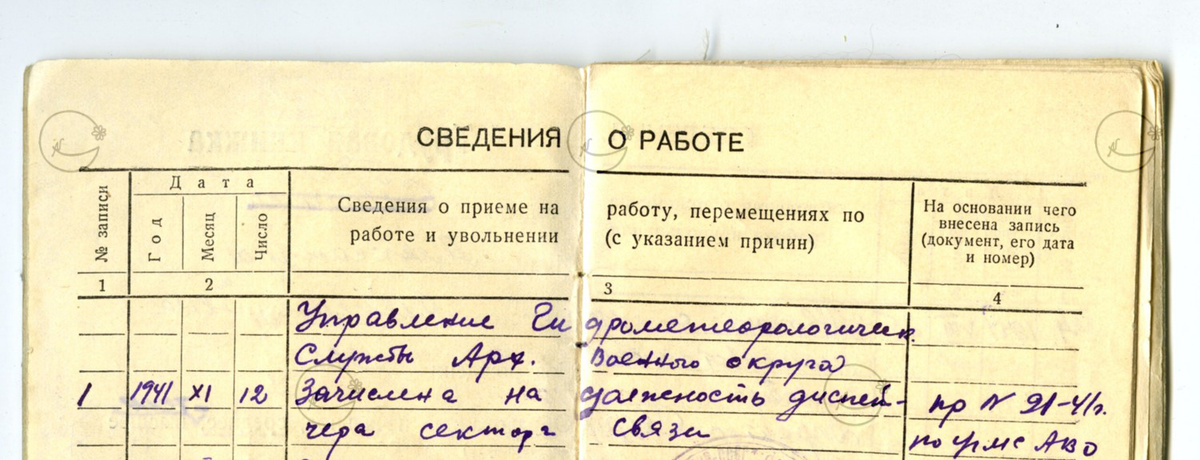 СВЕДЕНИЯ О РАБОТЕ
№ записи
Дата
Год
Месяц
Число
Сведения о приеме на работу, перемещениях по
работе и увольнении (с указанием причин)
На основании чего
внесена запись
(документ, его дата
и номер)
1 2 3 4
Управление Гидрометеорологическ.
Службы Арх. Военного округа
1 1941 XI 12 Зачислена на должность диспет- пр N 91-41г.
чера сектора связи по УГМС АВО